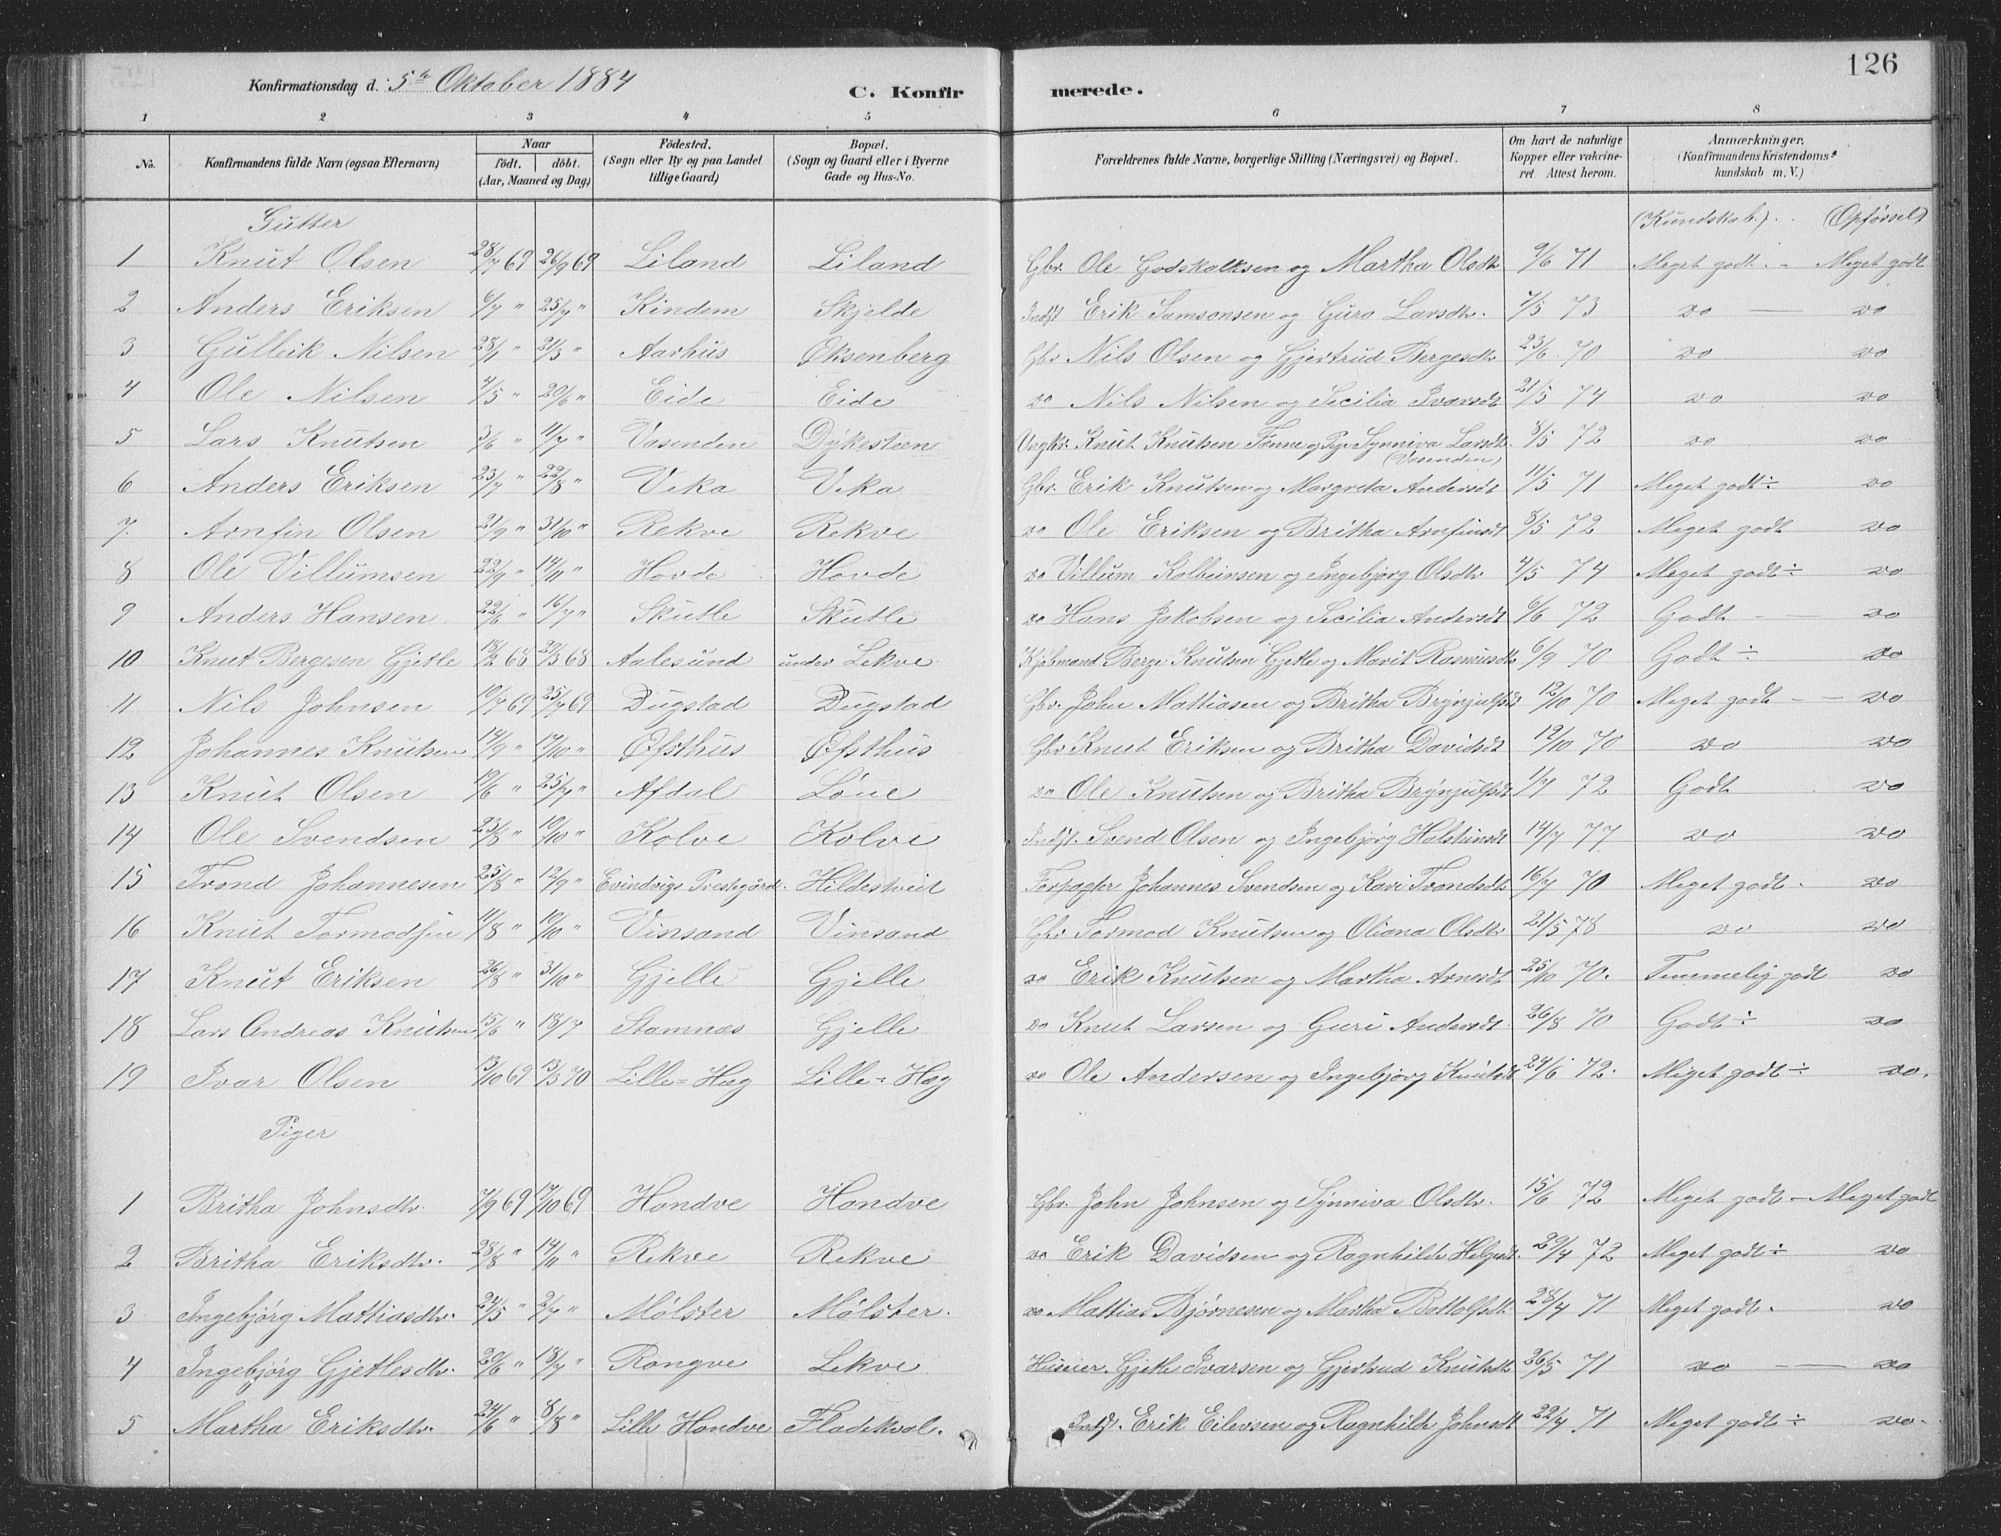 126
Konfirmationsdag d. 5te Oktober 1884
C. Konfirmerede.
1 2 3 4 5 6 7 8
No. | Konfirmandens fulde Navn (ogsaa Efternavn) | Naar födt. döbt. (Aar, Maaned og Dag) | Födested. (Sogn eller By og paa Landet tillige Gaard) | Bopæl. (Sogn og Gaard eller i Byerne Gade og Hus-No. | Forældrenes fulde Navne, borgerlige Stilling (Næringsvei) og Bopæl. | Om havt de naturlige Kopper eller vakcineret Attest herom. | Anmærkninger. (Konfirmandens Kristendomskundskab m. V.)
Gutter (Kundskab.) (Opförsel)
1 Knut Olsen 28/7 69 26/9 69 Liland Liland Gbr. Ole Godskalksen og Martha Olsdtr 9/6 71 Meget godt - Meget godt
2 Anders Eriksen 6/7 " 25/7 " Kindem Skjelde Indst Erik Samsonsen og Guro Larsdtr. 7/5 73 do — do
3 Gullvik Nilsen 28/1 " 21/3 " Aarhus Oksenberg Gbr Nils Olsen og Gjertrud Bergesdtr 23/6 70 do do
4 Ole Nilsen 4/5 " 20/6 " Eide Eide do Nils Nilsen og Secilia Ivarsdt 21/5 74 do do
5 Lars Knutsen 3/6 " 11/7 " Vasenden Dykesteen Ungkr. Knut Knutsen Tönne og Pige Synniva Larsdt. (Vasenden) 8/5 72 do do
6 Anders Eriksen 23/7 " 22/8 " Veka Veka Gbr. Erik Knutsen og Margreta Andersdt 11/5 71 Meget godt ÷ do
7. Arnfin Olsen 21/9 " 31/10 " Rekve Rekve do Ole Eriksen og Britha Arnfinsdt 8/5 72 Meget godt do
8 Ole Villumsen 22/9 " 14/11 " Hovde Hovde do Villum Kolbeinsen og Ingebjörg Olsdtr 4/5 74 Meget godt ÷ do
9 Anders Hansen 22/6 " 16/7 " Skutle Skutle do Hans Jakobsen og Secilia Andersdt 6/6 72 Godt - — do
10 Knut Bergesen Gjetle 18/2 68 29/3 68 Aalesund under Lekve Kjöbmand Berge Knutsen Gjetle og Marit Rasmusdtr 6/9 70 Godt ÷ do
11 Nils Johnsen 10/7 69 25/7 69 Dugstad Dugstad Gbr. John Mattiasen og Britha Brynjulfsdt 12/10 70 Meget godt - — do
12 Johannes Knutsen 14/9 " 17/10 " Øfsthus Øfsthus Gbr Knut Eriksen og Britha Davidsdt 12/10 70 do do
13 Knut Olsen 19/6 " 25/7 " Afdal Löne do Ole Knutsen og Britha Brynjulfsdt 1/7 72 Godt do
14 Ole Svendsen 23/8 " 10/10 " Kolve Kolve Indst. Svend Olsen og Ingebjörg Halstensdt 14/7 77 do do
15 Trond Johannesen 25/8 " 12/9 " Evindvigs Prestegård. Hildestveit Forpagter Johannes Svendsen og Kari Trondsdt 16/7 70 Meget godt - do
16 Knut Tormodsen 11/8 " 10/10 " Vinsand Vinsand Gbr Tormod Knutsen og Oliana Olsdtr 21/5 78 do do
17 Knut Eriksen 26/8 " 31/10 " Gjelle Gjelle do Erik Knutsen og Martha Arnesdt 25/10 70. Temmelig godt do
18 Lars Andreas Knutsen 15/6 " 18/7 Stamnæs Gjelle do Knut Larsen og Guri Andersdt. 26/8 70 Godt ÷ do
19 Ivar Olsen 13/10 69 13/3 70 Lille-Hæg Lille-Hæg do Ole Andersen og Ingebjörg Knutsdt 24/6 72. Meget godt ÷ do.
Piger
1 Britha Johnsdtr. 7/9 69 17/10 69 Hondve Hondve Gbr. John Johnsen og Synniva Olsdtr. 15/6 72 Meget godt - Meget godt
2 Britha Eriksdtr. 28/8 " 14/11 " Rekve Rekve do Erik Davidsen og Ragnhilde Helgesdt. 29/4 72 Meget godt ÷ do
3 Ingebjörg Mattiasdtr. 24/5 " 2/7 " Mölster Mölster. do Mattias Björnesen og Martha Bottolfsdt. 28/4 71 Meget godt. do
4 Ingebjörg Gjetlesdtr. 20/6 " 18/7 " Rongve Lekve Huseier. Gjetle Ivarsen og Gjertrud Knutsdtr 26/5 71 do — do
5 Martha Eriksdtr. 24/6 " 8/8 " Lille Hondve Fladekval. Indst. Erik Eilevsen og Ragnhilde Johnsdt 22/4 71 Meget godt ÷ do.